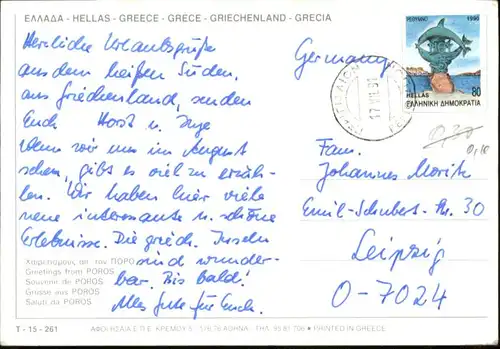 ΕΛΛΑΔΑ - HELLAS - GREECE - GRÈCE - GRIECHENLAND - GRECIA
Herzliche Urlaubsgrüße
aus dem heißen Süden,
aus Griechenland, senden
Euch Horst u. Inge
Wenn wir uns im August
sehen, gibt es viel zu erzäh-
len. Wir haben hier viele
neue interessante u. schöne
Erlebnisse. Die griech. Inseln
sind wunder-
bar. Bis bald!
Alles Gute für Euch.
Χαιρετισμοί απ' τον ΠΟΡΟ
Greetings from POROS
Souvenir de POROS
Grüsse aus POROS
Saluti da POROS
T - 15 - 261
ΑΘΗΝΑ - ΤΗΛ. 93 81 706 • PRINTED IN GREECE
Germany
ΡΕΘΥΜΝΟ 1990
80
HELLAS
ΕΛΛΗΝΙΚΗ ΔΗΜΟΚΡΑΤΙΑ
0,30
Fam.
Johannes Moritz
Emil-Schubert-Str. 30
Leipzig
O-7024